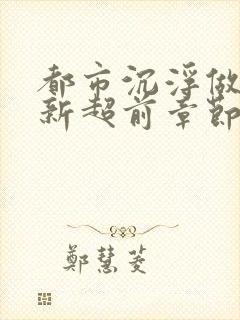 都市沉浮做
新超前章節
鄭慧菱